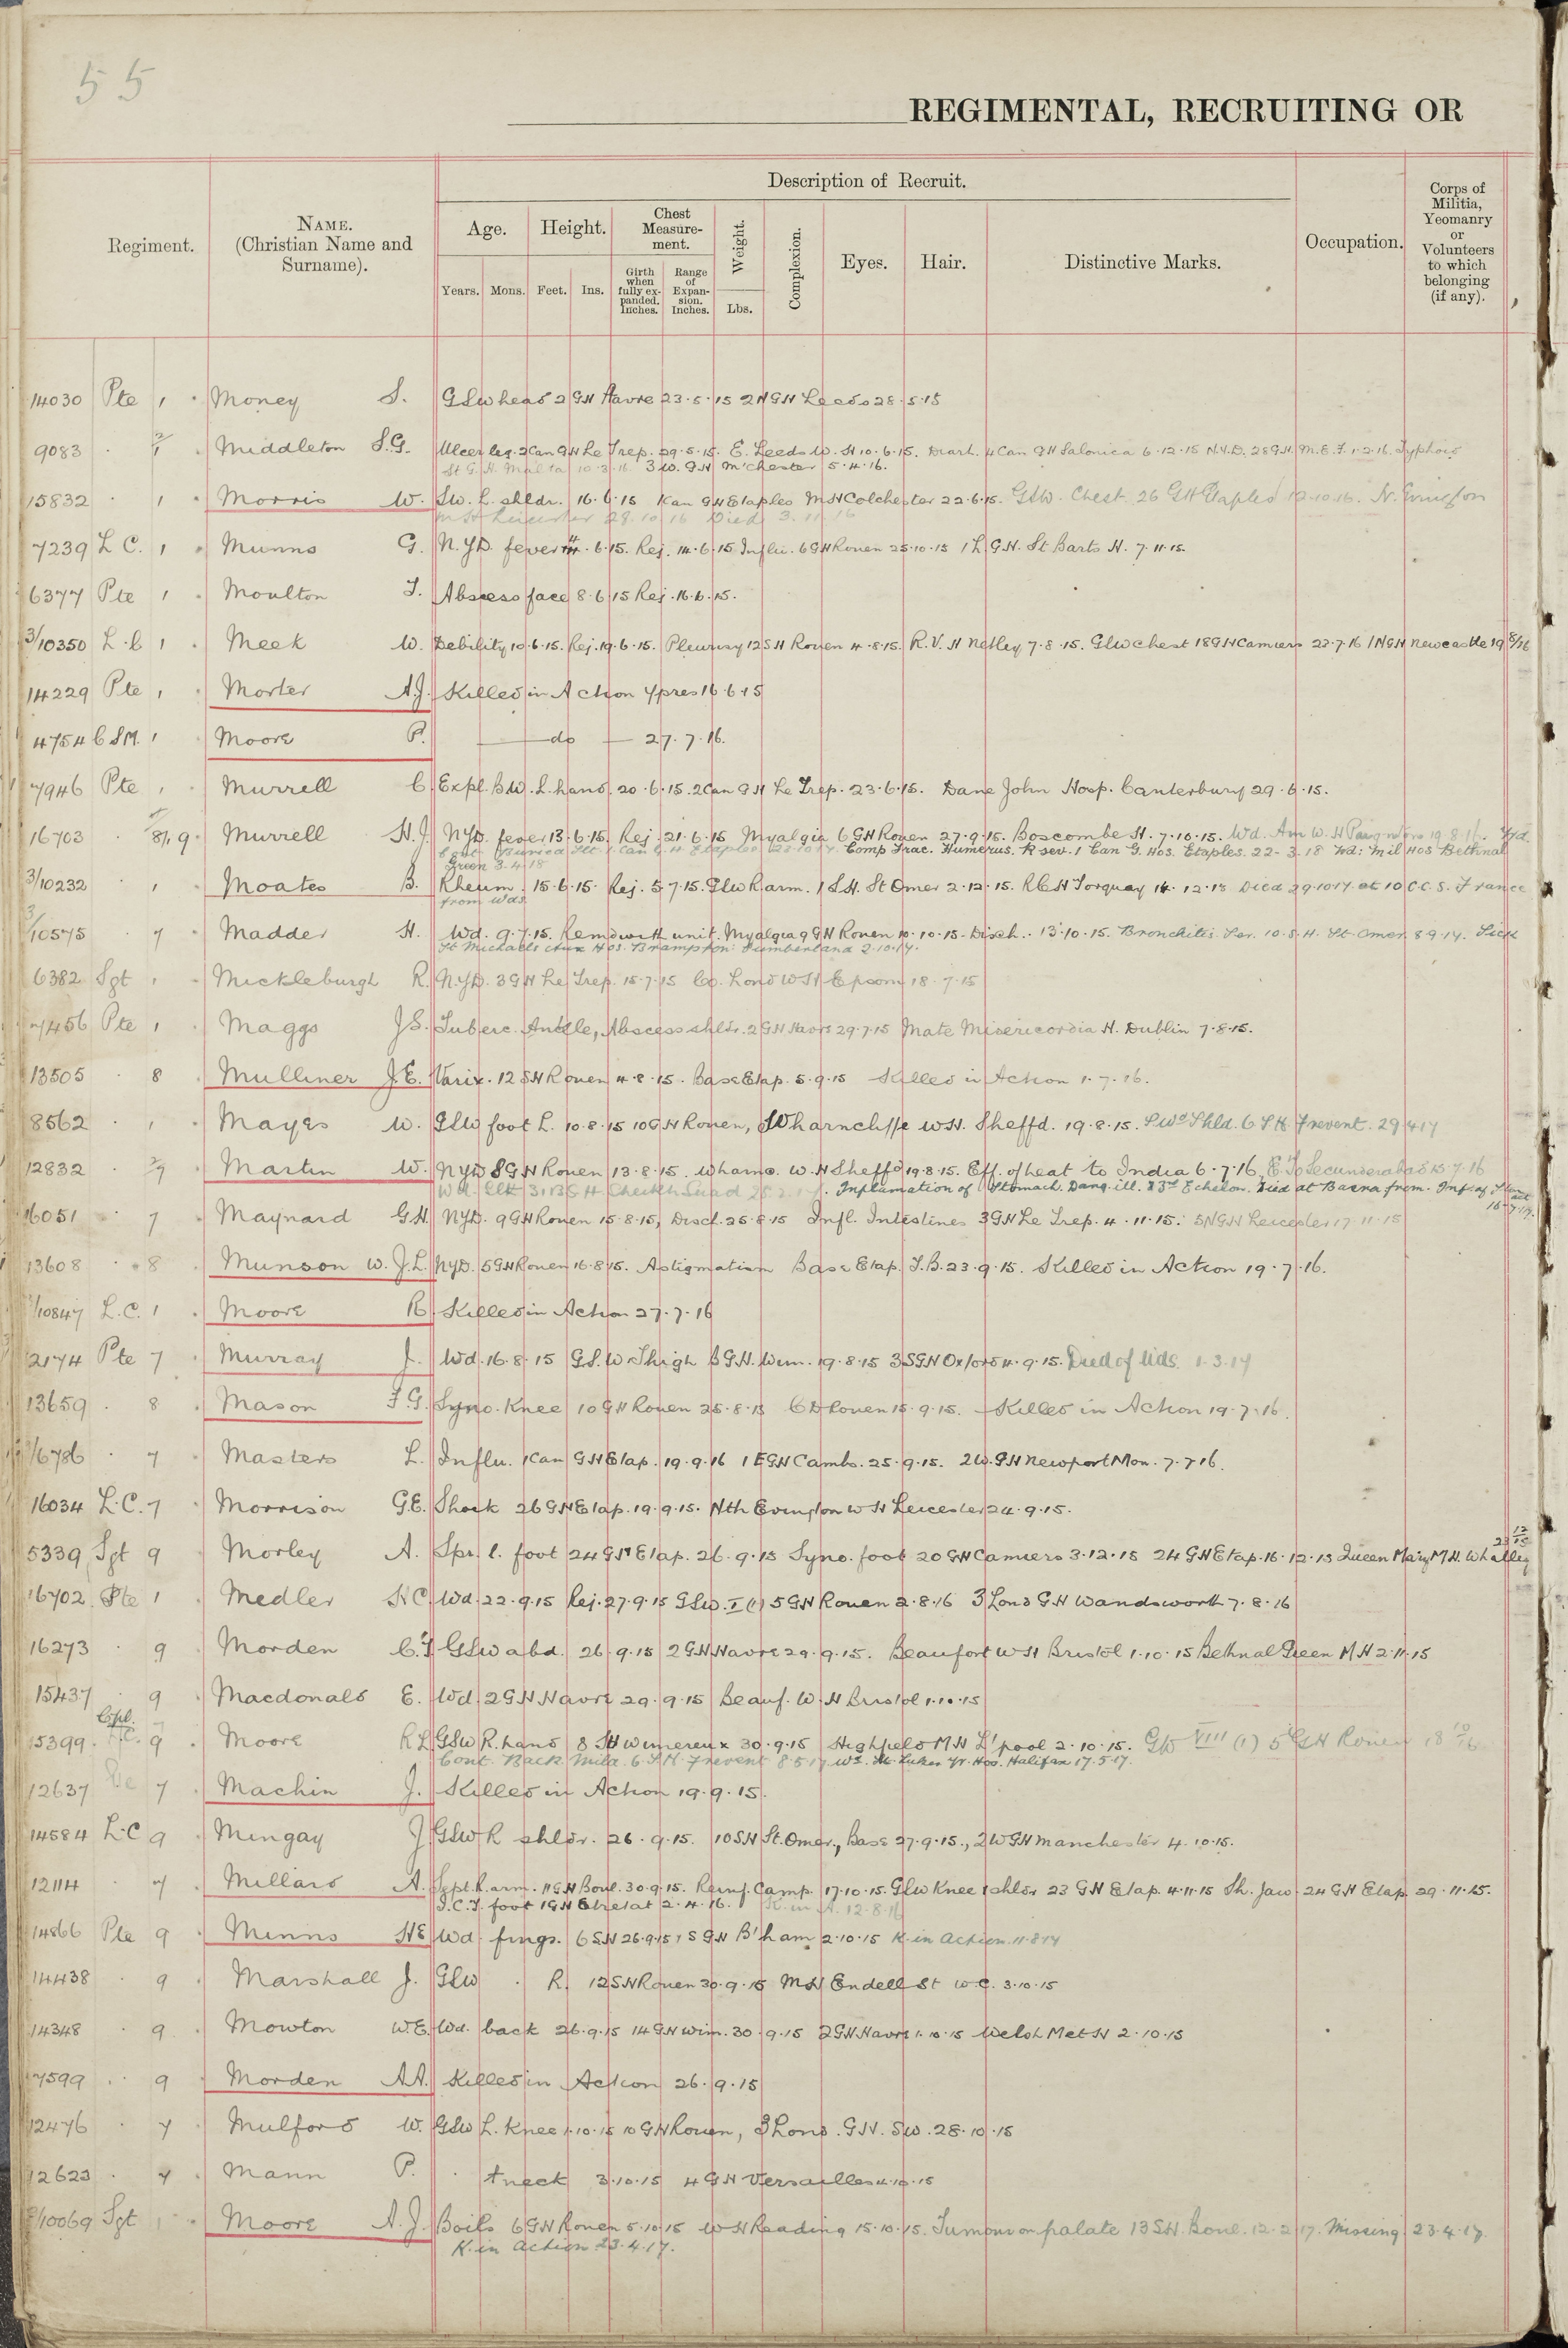 55
REGIMENTAL, RECRUITING OR
Regiment.
NAME.
(Christian Name and
Surname).
Description of Recruit.
Age.
Height.
Chest
Measure-
ment.
Weight.
Complexion.
Eyes.
Hair.
Distinctive Marks.
Occupation.
Corps of
Militia,
Yeomanry
or
Volunteers
to which
belonging
(if any).
Years.
Mons.
Feet.
Ins.
Girth
when
fully ex-
panded.
Inches.
Range
of
Expan-
sion.
Inches.
Lbs.
14030 Pte 1 Money S. GSW head 2 GH Havre 23.5.15 2NGH Leeds 28.5.15
9083 . 2/1 Middleton S.G. Ulcer leg. 2 Can GH Le Trep. 29.5.15. E. Leeds W.H 10.6.15. Diarh. 4 Can GH Salonica 6.12.15 N.Y.D. 28 G.H. M.E.F. 1.2.16. Typhoid
St G.H. Malta 10.3.16. 3 W. GH M'chester 5.4.16.
15832 . 1 Morris W. SW. L. shldr. 16.6.15 1Can GH Etaples MH Colchester 22.6.15. GSW. Chest 26 GH Etaples 12.10.16. N. Evington
MH Leicester 28.10.16 Died 3.11.16
7239 L C. 1 Munns G. N.Y.D. fever 4.6.15. Rej. 14.6.15 Influ. 6 GH Rouen 25.10.15 1 L G.H. St Barts H. 7.11.15.
6377 Pte 1 Moulton T. Abscess face 8.6.15 Rej. 16.6.15.
3/10350 L.C 1 Meek W. Debility 10.6.15. Rej. 19.6.15. Pleurisy 12 S H Rouen 4.8.15. R.V.H Netley 7.8.15. GSW chest 18 GH Camiers 22.7.16 1 NGH Newcastle 19 8/16
14229 Pte 1 Morter A.J. Killed in Action Ypres 16.6.15
4754 C.S.M. 1 Moore P. do 27.7.16.
7946 Pte 1 Murrell C. Expl. B.W. L. hand. 20.6.15. 2 Can GH Le Trep. 23.6.15. Dane John Hosp. Canterbury 29.6.15.
16703 . 8/1, 9 Murrell H.J. NYD. fever 13.6.15. Rej. 21.6.15 Myalgia 6 GH Rouen 27.9.15. Boscombe H. 7.10.15. Wd. Am W.H Paignton 19.8.16. Wd.
Cont. Buried Slt. 1 Can G.H Etaples 23.10.17. Comp Frac. Humerus. R sev. 1 Can G. Hos. Etaples. 22-3.18 Wd: Mil Hos Bethnal
Green 3.4.18
3/10232 . 1 Moates B. Rheum. 15.6.15. Rej. 5.7.15. GSW R arm. 1 S.H. St Omer 2.12.15. RCH Torquay 14.12.15 Died 29.10.17. at 10 C.C.S. France
from wds
3/10575 . 7 Madder H. Wd. 9.7.15. Remd with unit. Myalgia 9 GH Rouen 10.10.15. Disch. 13.10.15. Bronchitis Ser. 10.S.H. St Omer. 8.9.17. Sick
St Michaels Aux Hos. Brampton: Cumberland 2.10.17.
6382 Sgt 1 Mickleburgh R. N.Y.D. 3 GH Le Trep. 15.7.15 Co. Lond W H Epsom 18.7.15
7456 Pte 1 Maggs J.S. Tuberc. Ankle, Abscess shldr. 2 GH Havre 29.7.15 Mate Misericordia H. Dublin 7.8.15.
13505 . 8 Mulliner J.E. Varix. 12 SH Rouen 4.8.15. Base Etap. 5.9.15 Killed in Action 1.7.16.
8562 . 1 Mayes W. GSW foot L. 10.8.15 10 GH Rouen, Wharncliffe W.H. Sheffd. 19.8.15. S Wd Shld. 6 S H. Frevent. 29.4.17
12832 . 2/7 Martin W. NYD 8 GH Rouen 13.8.15. Wharnc. W.H Sheffd 19.8.15. Eff. of heat to India 6.7.16 E To Secunderabad 15.7.16
Wd. Slt 3.1.B.G.H Cheikh Saad 25.2.17. Inflamation of Stomach. Dang. ill. 3rd Echelon. Died at Basra from. Inf of Stomach
15-7-17.
16051 7 Maynard G.H NYD. 9 GH Rouen 15.8.15, Disch. 25.8.15 Infl. Intestines 3 GH Le Trep. 4.11.15. 5 NGH Leicester 17.11.15
13608 . 8 Munson W.J.L. NYD. 5 GH Rouen 16.8.15. Astigmatism Base Etap. T.B. 23.9.15. Killed in Action 19.7.16.
3/10847 L.C. 1 Moore R. Killed in Action 27.7.16
12174 Pte 7 Murray J. Wd. 16.8.15 G.S.W Thigh 8 G.H. Wim. 19.8.15 3 S G H Oxford 4.9.15. Died of Wds. 1.3.17
13659 . 8 Mason F.G. Syno. Knee 10 GH Rouen 25.8.15 C D Rouen 15.9.15. Killed in Action 19.7.16.
3/6786 . 7 Masters L. Influ. 1 Can GH Etap. 19.9.16 1 EGH Cambs. 25.9.15. 2 W. GH Newport Mon. 7.7.16.
16034 L.C. 7 Morrison G.E. Shock 26 GH Etap. 19.9.15. Nth Evington W H Leicester 24.9.15.
5339 Sgt 9 Morley A. Spr. l. foot 24 GH Etap. 26.9.15 Syno. foot 20 GH Camiers 3.12.15 24 GH Etap. 16.12.15 Queen Mary M.H. Whalley 23 12/15
16702 Pte 1 Medler H C. Wd. 22.9.15 Rej. 27.9.15 GSW. I (1) 5 GH Rouen 2.8.16 3 Lond G.H Wandsworth 7.8.16
16273 . 9 Morden C.T GSW abd. 26.9.15 2 GH Havre 29.9.15. Beaufort W H Bristol 1.10.15 Bethnal Green M H 2.11.15
15437 . 9 Macdonald E. Wd. 2 GH Havre 29.9.15 Beauf. W.H Bristol 1.10.15
Cpl.
15399. L.C. 9 Moore R L GSW R. hand 8 SH Wimereux 30.9.15 Highfield M H L'pool 2.10.15. GSW VIII (1) 5 GH Rouen 18 10/16
Cont. Back Mild. 6 S.H. Frevent 8.5.17 Wd. St. Lukes Wr. Hos. Halifax 17.5.17.
12637 Pte 7 Machin J. Killed in Action 19.9.15.
14584 L.C 9 Mingay J GSW R shldr. 26.9.15. 10 SH St. Omer., Base 27.9.15., 2 W GH Manchester 4.10.15.
12114 . 7 Millard A. Sept. R. arm. 11 GH Boul. 30.9.15. Reinf. Camp. 17.10.15. GSW Knee & shldr 23 GH Etap. 4.11.15 Sh. Jaw. 24 GH Etap. 29.11.15.
I.C.T. foot 1 GH Etretat 2.4.16. K. in A. 12.8.16
14866 Pte 9 Minns H E Wd. fings. 6 SH 26.9.15 1 S GH B'ham 2.10.15 K. in Action. 11.8.17
14438 . 9 Marshall J. GSW . R. 12 SH Rouen 30.9.15 MH Endell St W.C. 3.10.15
14348 . 9 Mowton W.E. Wd. back 26.9.15 14 GH Wim. 30.9.15 2 GH Havre 1.10.15 Welsh Met H 2.10.15
7599 . 9 Morden A.A. Killed in Action 26.9.15
12476 . 7 Mulford W. GSW L. Knee 1.10.15 10 GH Rouen, 3 Lond. G.H. S.W. 28.10.15
12623 . 7 Mann P. . & neck 3.10.15 4 GH Versailles 4.10.15
3/10069 Sgt 1 Moore A.J. Boils 6 GH Rouen 5.10.15 W H Reading 15.10.15. Tumour on palate 13 SH. Boul. 12.2.17. Missing 23.4.17.
K. in Action 23.4.17.